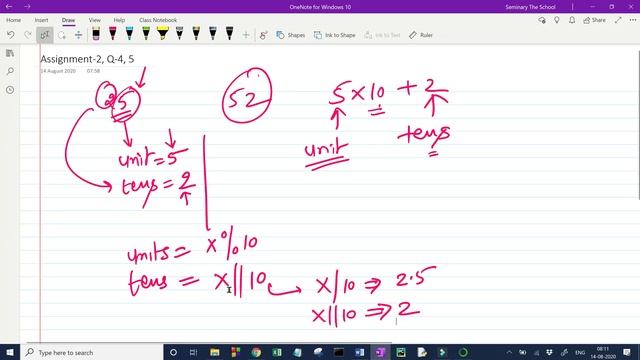 OneNote for Windows 10
Seminary The School
Home Insert Draw View Help Class Notebook
Shapes Ink to Shape Ink to Text Ink to Math Ruler
Assignment-2, Q-4, 5
14 August 2020 07:58
25
52
5 x 10 + 2
unit
tens
unit = 5
tens = 2
units = x % 10
tens = x // 10
x/10 ⇒ 2.5
x//10 ⇒ 2
Type here to search
ENG
08:11
14-08-2020